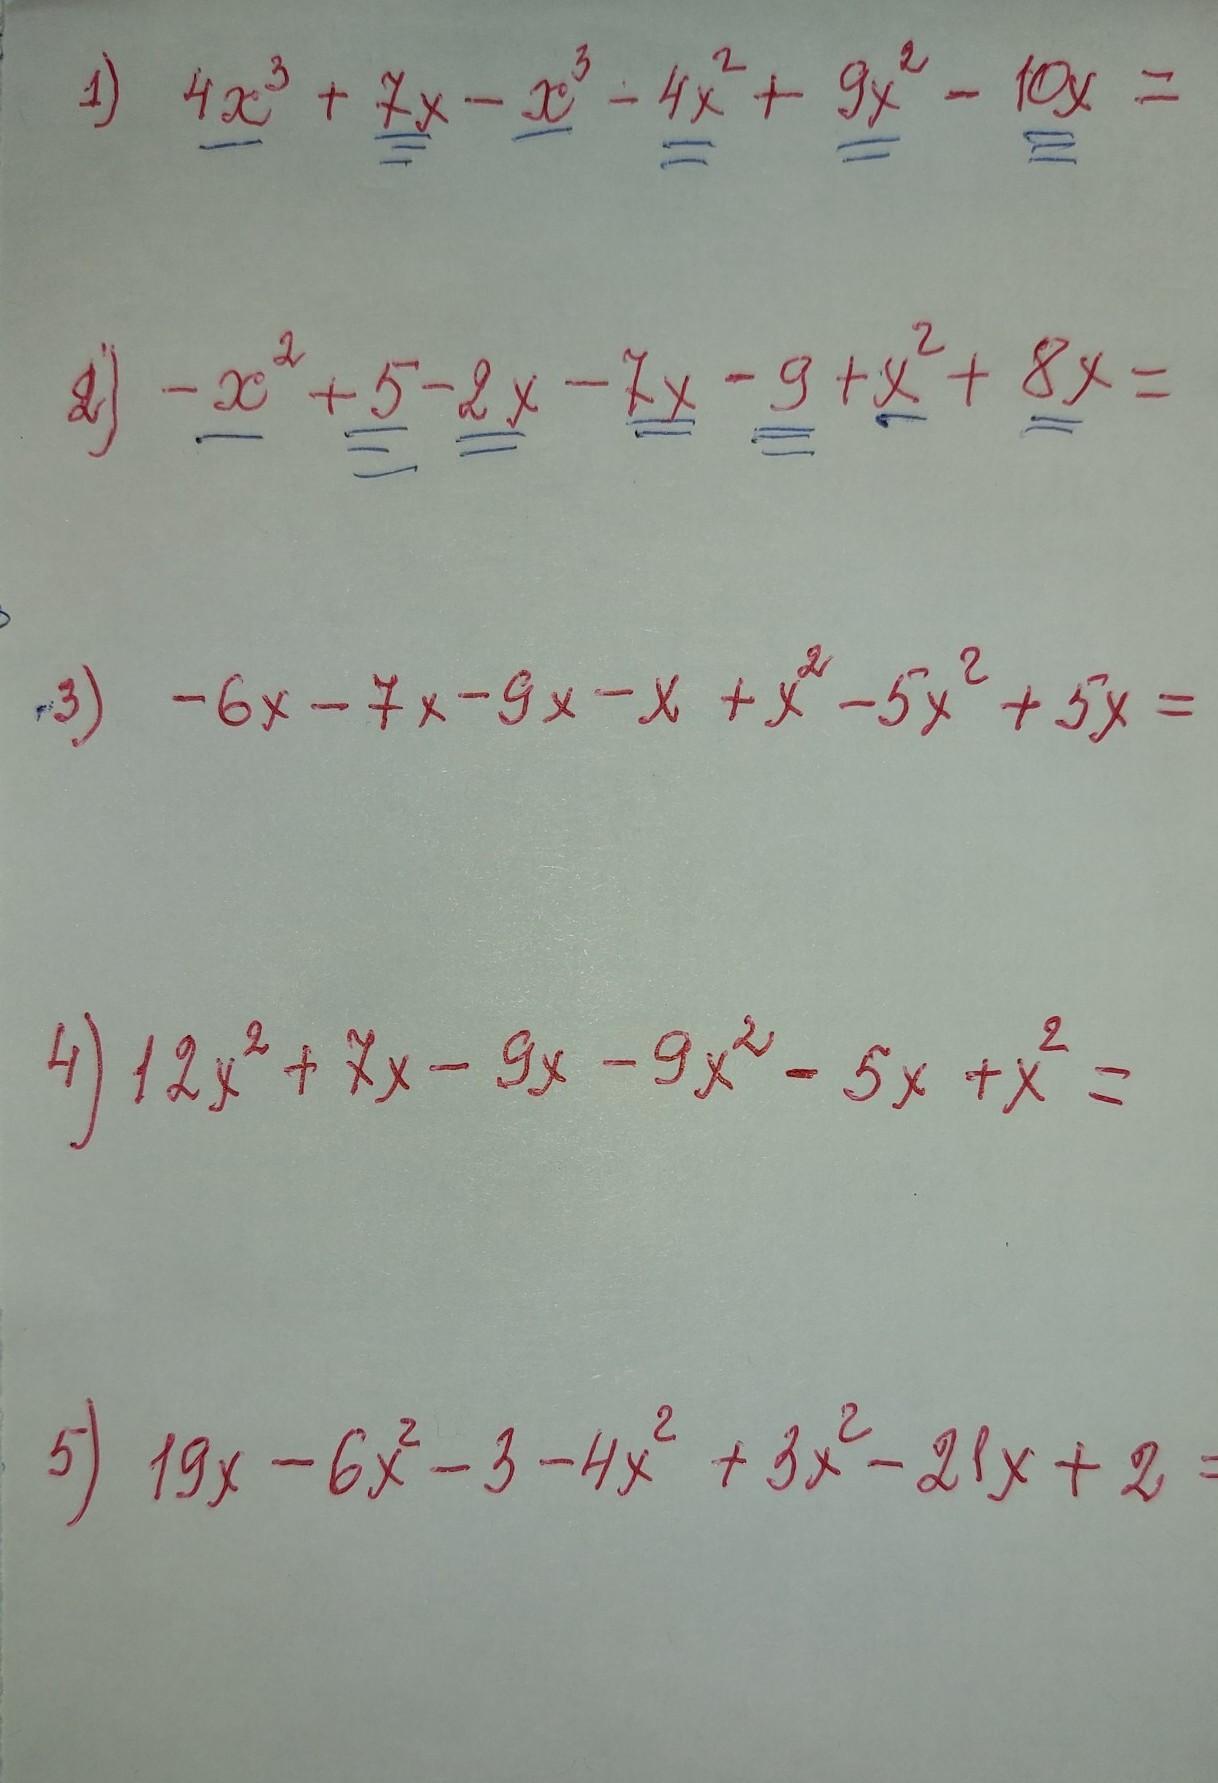 1) 4x³ + 7x - x³ - 4x² + 9x² - 10x =
2) - x² + 5 - 2x - 7x - 9 + x² + 8x =
3) - 6x - 7x - 9x - x + x² - 5x² + 5x =
4) 12x² + 7x - 9x - 9x² - 5x + x² =
5) 19x - 6x² - 3 - 4x² + 3x² - 21x + 2 =